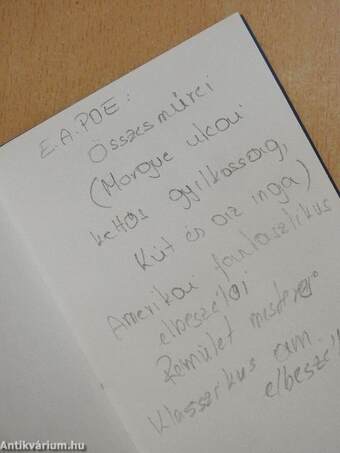 E.A.POE:
Összesművei
(Morgue ukai
kettős gyilkosság,
Kút és az inga)
Amerikai fantasztikus
elbeszélői
Rémület mesterei
Klasszikus am.
elbeszél
Antikvárium.hu